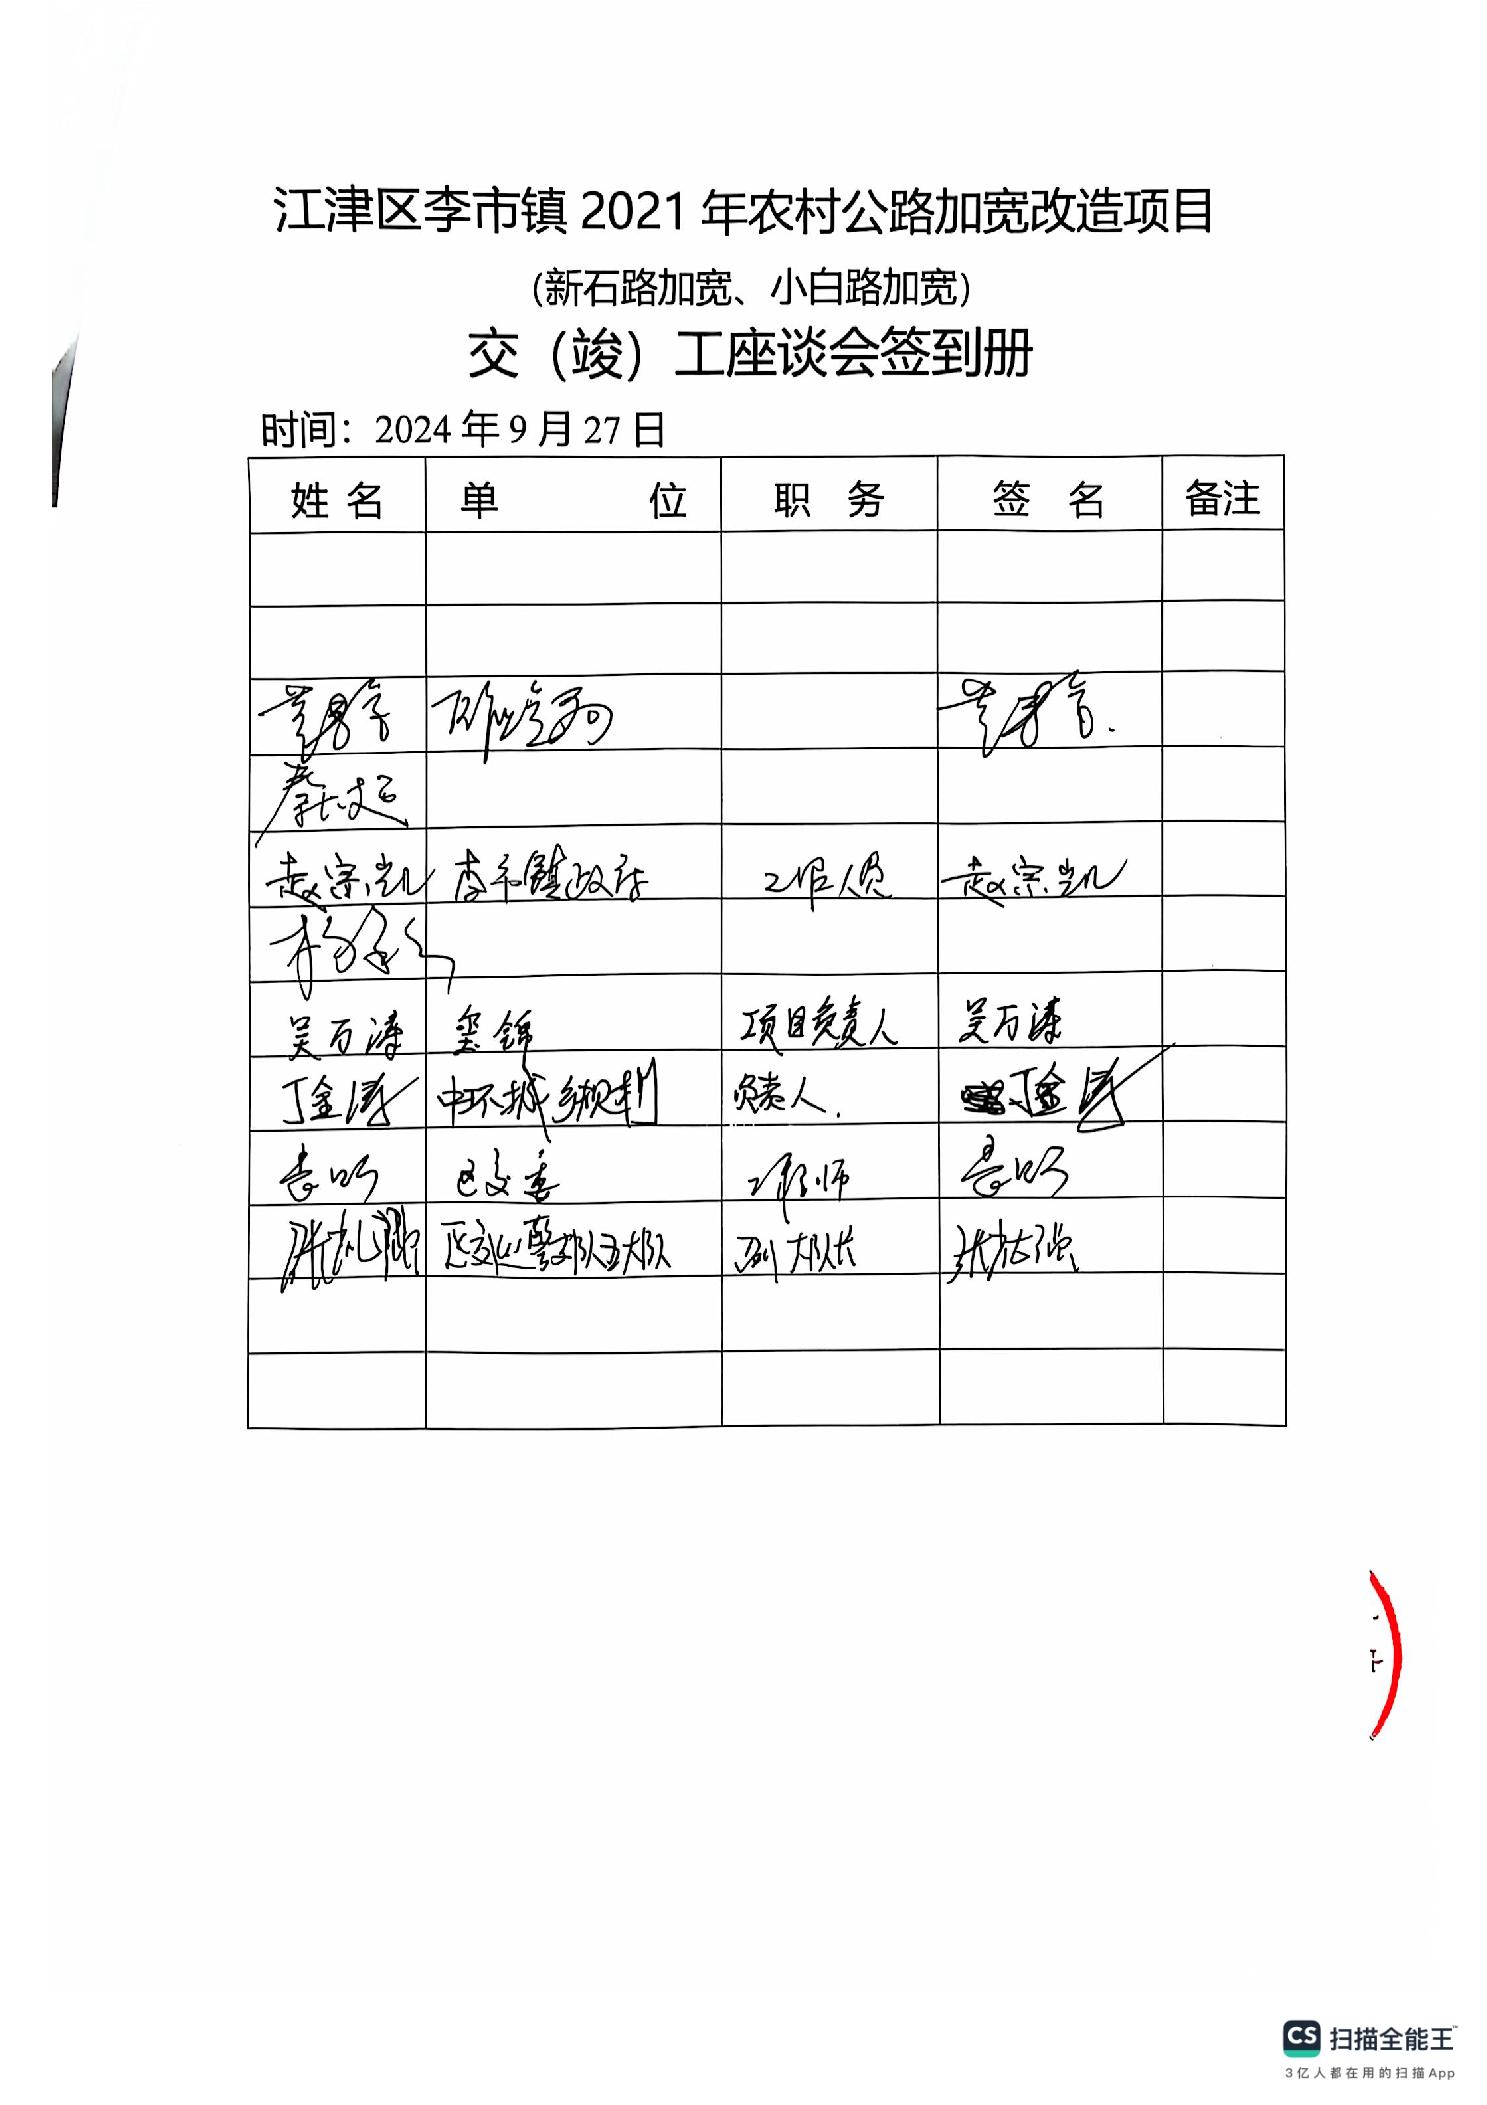 江津区李市镇 2021 年农村公路加宽改造项目
(新石路加宽、小白路加宽)
交（竣）工座谈会签到册
时间：2024 年 9 月 27 日
姓 名 单 位 职 务 签 名 备注
赵宗凯 李市镇政府 工作人员 赵宗凯
吴万涛 玺锦 项目负责人 吴万涛
丁金涛 中环城乡规划 负责人. 丁金涛
区交委 工程师
区交巡警支队五大队 副大队长
CS 扫描全能王
3亿人都在用的扫描App